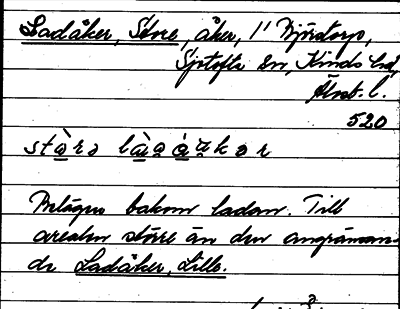 Ladåker, Store, åker, 1" Björstorp,
Sjötofta sn, Kinds hd,
Älvsb. l.
520
Belägen bakom ladan. Till
arealen större än den angränsan-
de Ladåker, Lille.